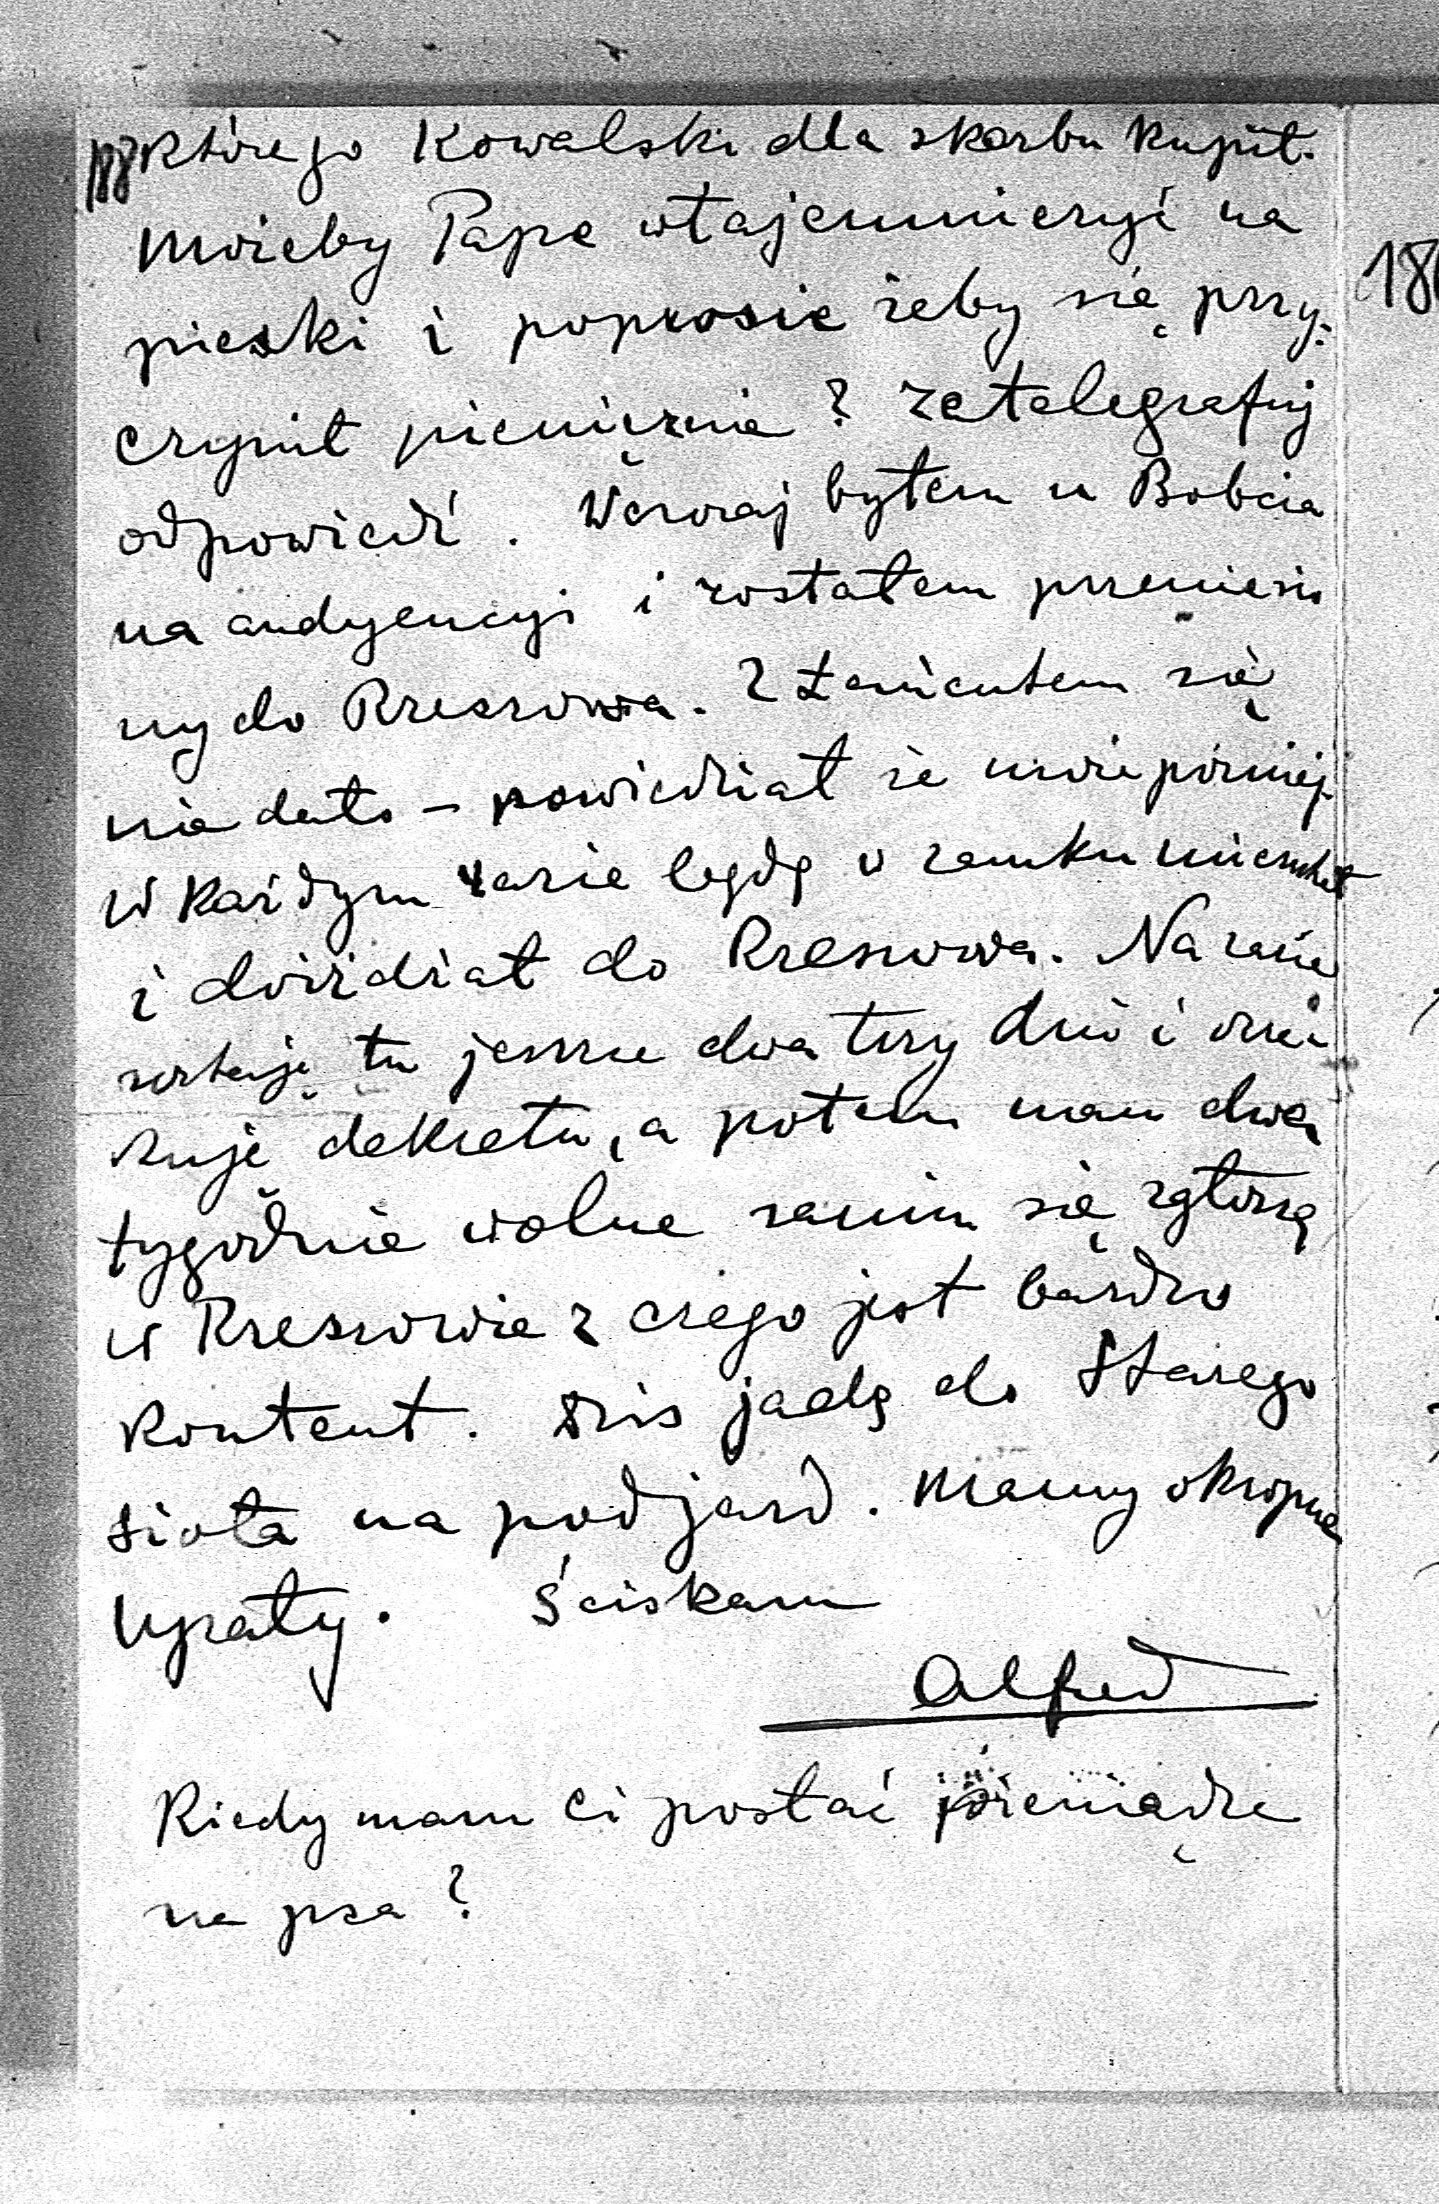 188 którego Kowalski dla skarbu kupił.
Możeby Papę wtajemniczyć na
pieski i poprosić żeby się przy-
czynił pieniężnie? Zatelegrafuj
odpowiedź. Wczoraj byłem u Bobcia
na audyencyi i zostałem przeniesio
ny do Rzeszowa. Z Łańcutem się
nie dało – powiedział że może później.
W każdym razie będę w zamku mieszkał
i dojeżdżał do Rzeszowa. Na razie
zostaję tu jeszcze dwa trzy dni i ocze
kuję dekretu, a potem mam dwa
tygodnie wolne zanim się zgłoszę
w Rzeszowie z czego jest bardzo
kontent. Dziś jadę do Starego
sioła na podjazd. Mamy okropne
upały. Ściskam
Alfred
Kiedy mam Ci posłać pieniądze
na psa?